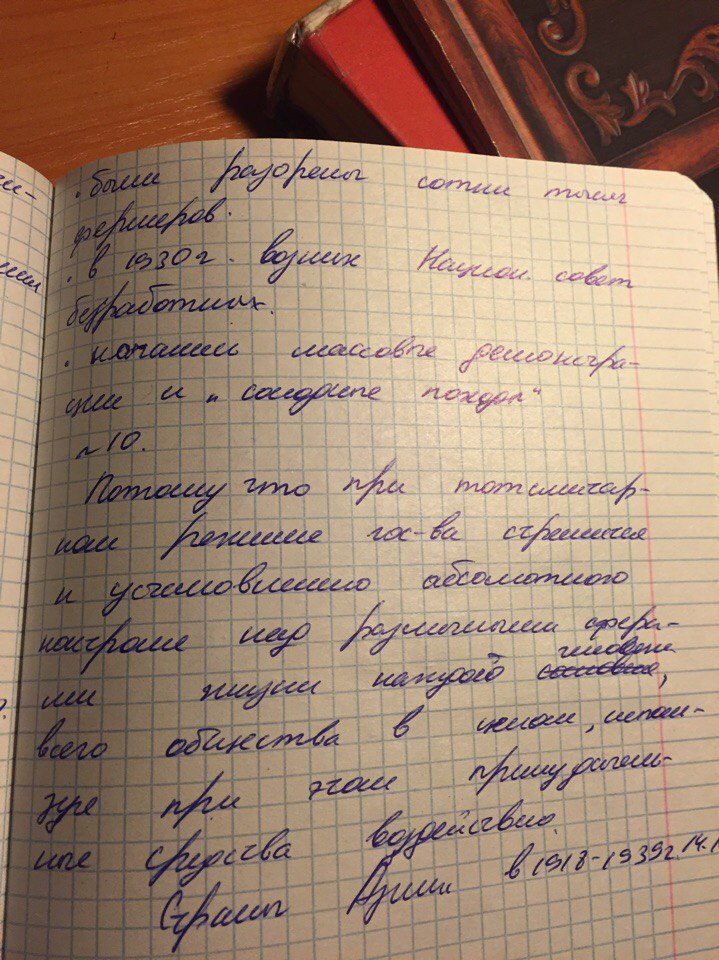 · были разорены сотни тысяч
фермеров.
· в 1930г. возник Национ. совет
безработных.
· начались массовые демонстра-
ции и „голодные походы"
~10.
Потому что при тоталитар-
ном режиме гос-ва стремится
к установлению абсолютного
контроля над различными сфера-
ми жизни каждого человека,
всего общества в целом, исполь-
зуя при этом принудитель-
ные средства воздействия.
Страны Азии в 1918-1939г. 14.1